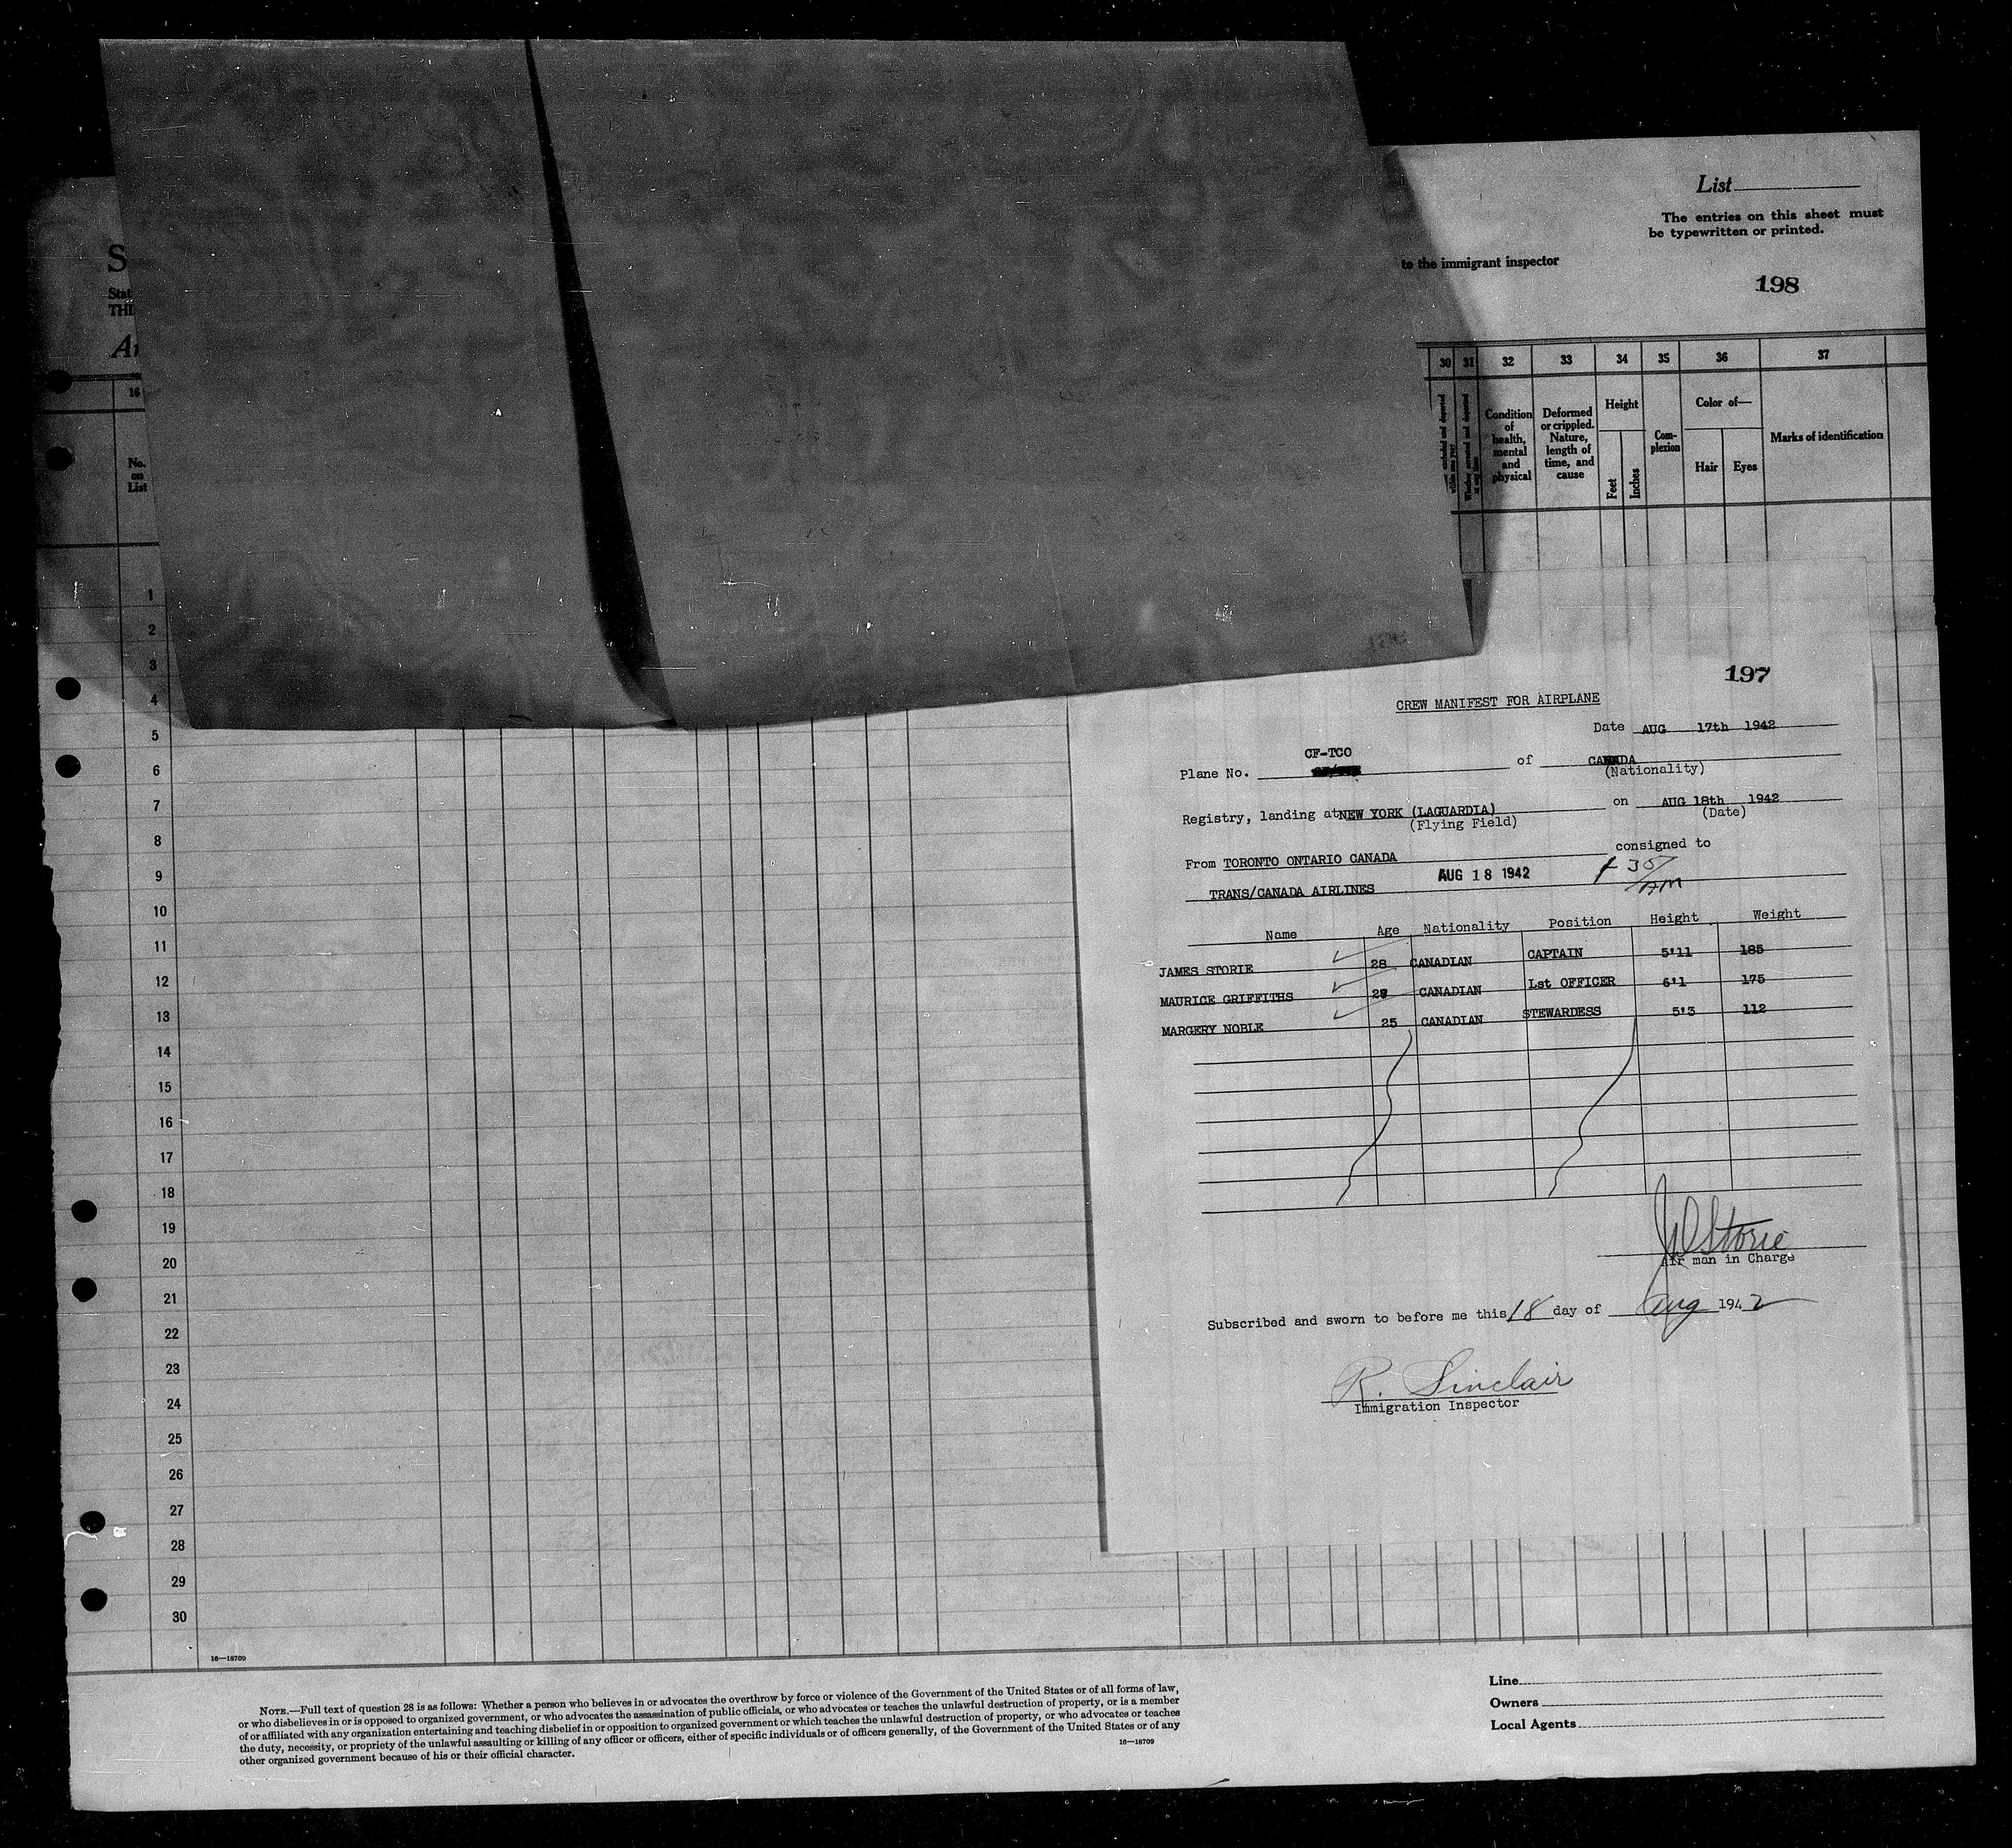 List
The entries on this sheet must
be typewritten or printed.
to the immigrant inspector
198
S
Stat
THI
16
30 31 32 33 34 35 36 37
No.
on
List
Condition
of
health,
mental
and
physical
Deformed
or crippled.
Nature,
length of
time, and
cause
Height
Feet
Inches
Com-
plexion
Color of—
Hair Eyes
Marks of identification
1
2
3
4
5
6
7
8
9
10
11
12
13
14
15
16
17
18
19
20
21
22
23
24
25
26
27
28
29
30
197
CREW MANIFEST FOR AIRPLANE
Date AUG 17th 1942
CF-TCO
Plane No. of CANADA
(Nationality)
Registry, landing at NEW YORK (LAGUARDIA) on AUG 18th 1942
(Flying Field) (Date)
From TORONTO ONTARIO CANADA consigned to
TRANS/CANADA AIRLINES AUG 18 1942 AM
Name Age Nationality Position Height Weight
JAMES STORIE 28 CANADIAN CAPTAIN 5'11 185
MAURICE GRIFFITHS CANADIAN Lst OFFICER 6'1 175
MARGERY NOBLE 25 CANADIAN STEWARDESS 5'3 112
Storie
Air man in Charge
Subscribed and sworn to before me this 18 day of Aug 1942
R. Sinclair
Immigration Inspector
16—18709
NOTE.—Full text of question 28 is as follows: Whether a person who believes in or advocates the overthrow by force or violence of the Government of the United States or of all forms of law,
or who disbelieves in or is opposed to organized government, or who advocates the assassination of public officials, or who advocates or teaches the unlawful destruction of property, or is a member
of or affiliated with any organization entertaining and teaching disbelief in or opposition to organized government or which teaches the unlawful destruction of property, or who advocates or teaches
the duty, necessity, or propriety of the unlawful assaulting or killing of any officer or officers, either of specific individuals or of officers generally, of the Government of the United States or of any
other organized government because of his or their official character.
16—18709
Line
Owners
Local Agents